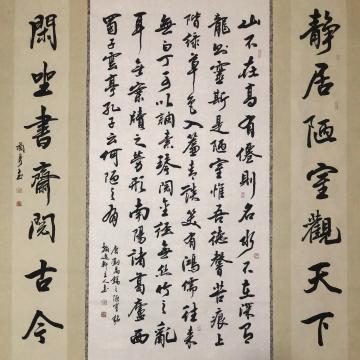 靜居陋室觀天下
山不在高有僊則名水不在深有
龍則靈斯是陋室惟吾德馨苔痕上
階綠草色入簾青談笑有鴻儒往來
無白丁可以調素琴閱金經無絲竹之亂
耳無案牘之勞形南陽諸葛廬西
蜀子雲亭孔子云何陋之有
唐劉禹錫之陋室銘
閑坐書齋閱古今